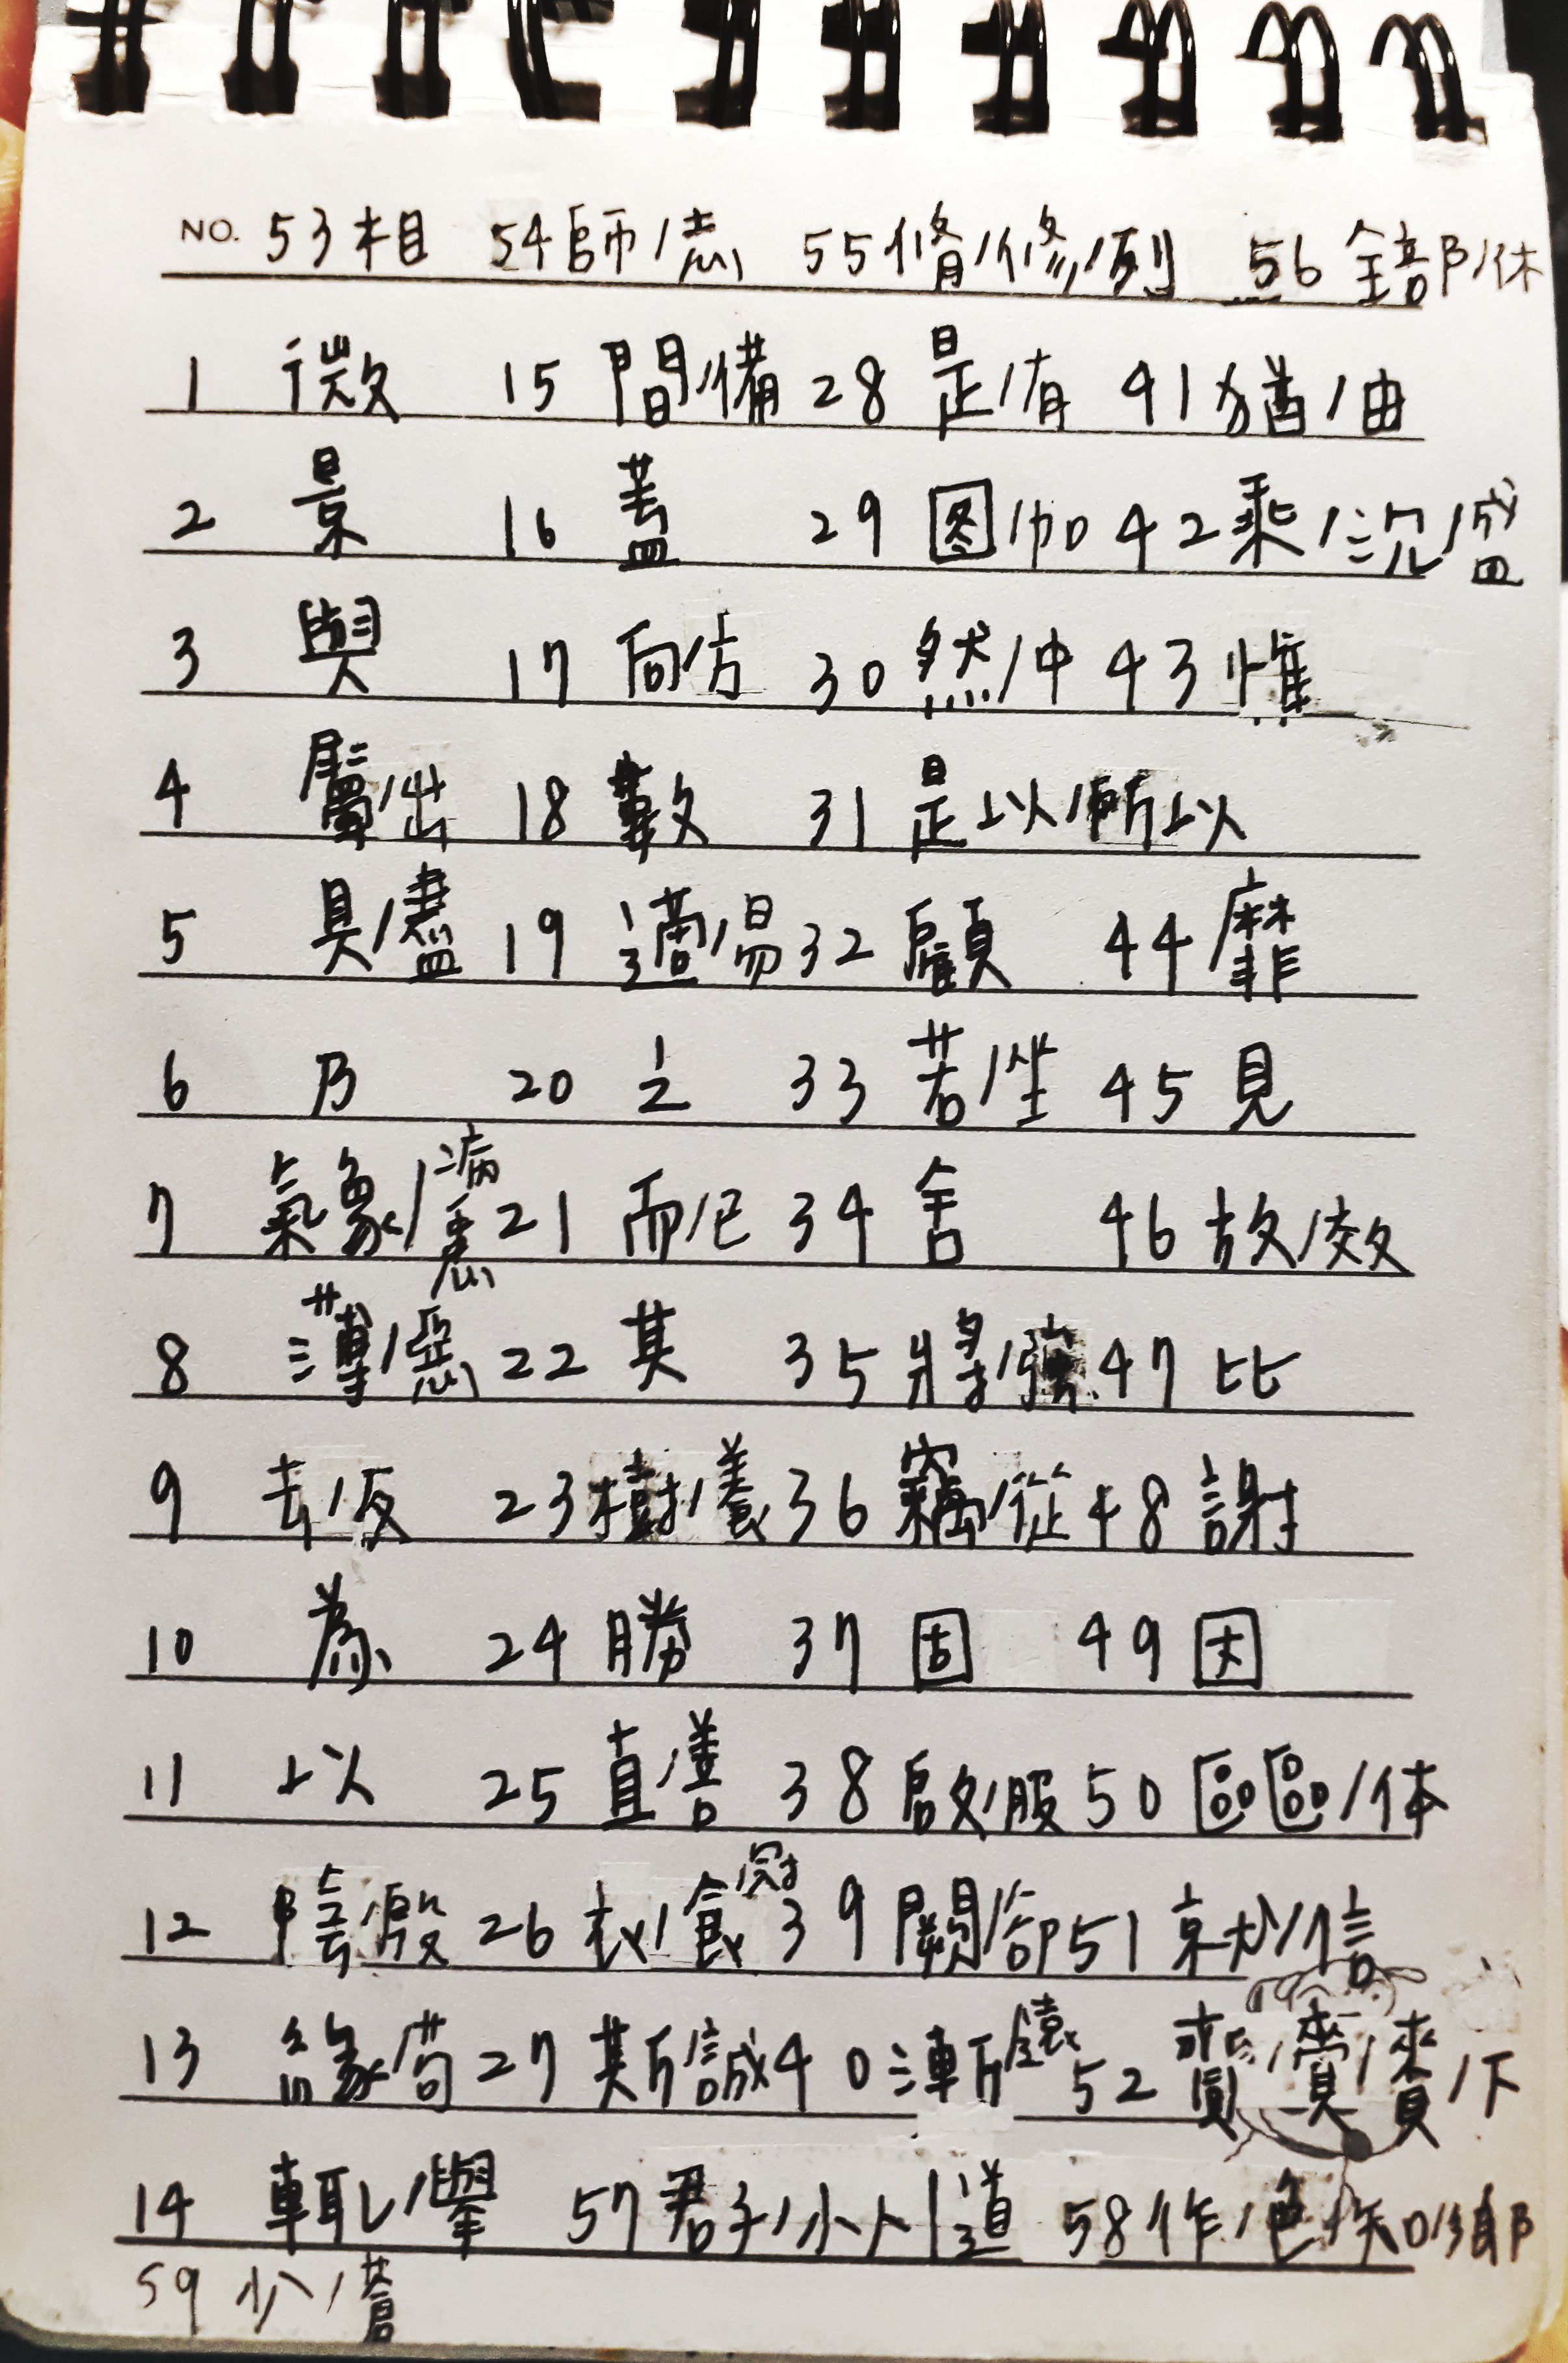 NO. 53相 54師/焘 55脩/修/列 56全部/休
1 微 15 間/備 28 是/有 41猶/由
2 景 16 蓋 29 图/加 42乘/沉/盛
3 與 17 向/方 30 然/中 43惟
4 屬/出 18 數 31 是以/所以
5 具/盡 19 適/易 32 顧 44 靡
6 乃 20 之 33 若/坐 45 見
7 氣象/病 21 而/已 34 舍 46 故/效
8 薄/惡 22 其 35 將/強 47 比
9 去/反 23樹/養 36 竊/從 48 謝
10 為 24 勝 37 固 49 因
11 以 25 直/善 38 啟/服 50 區區/体
12 陰/殷 26 衣/食/冠 39 闕/卻 51 就/信
13 緣/苟 27 斯/誠 40 漸/鐃 52 賢/賞/賚/下
14 輒/舉 57君子/小人/道 58作/色/知/鄉
59 少/蒼